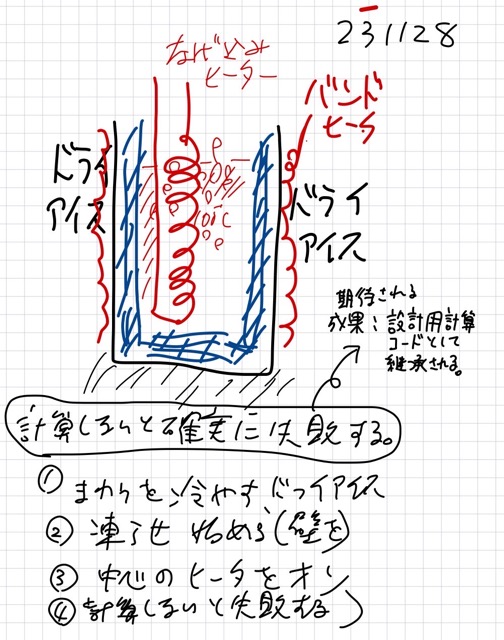 231128
なげ込み
ヒーター
バンド
ヒータ
ドライ
アイス
ドライ
アイス
0℃
期待される
成果：設計用計算
コードとして
継承される。
計算しないと確実に失敗する。
① まわりを冷やす、ドライアイス
② 凍らせ始める(壁を)
③ 中心のヒータをオン
④ 計算しないと失敗する